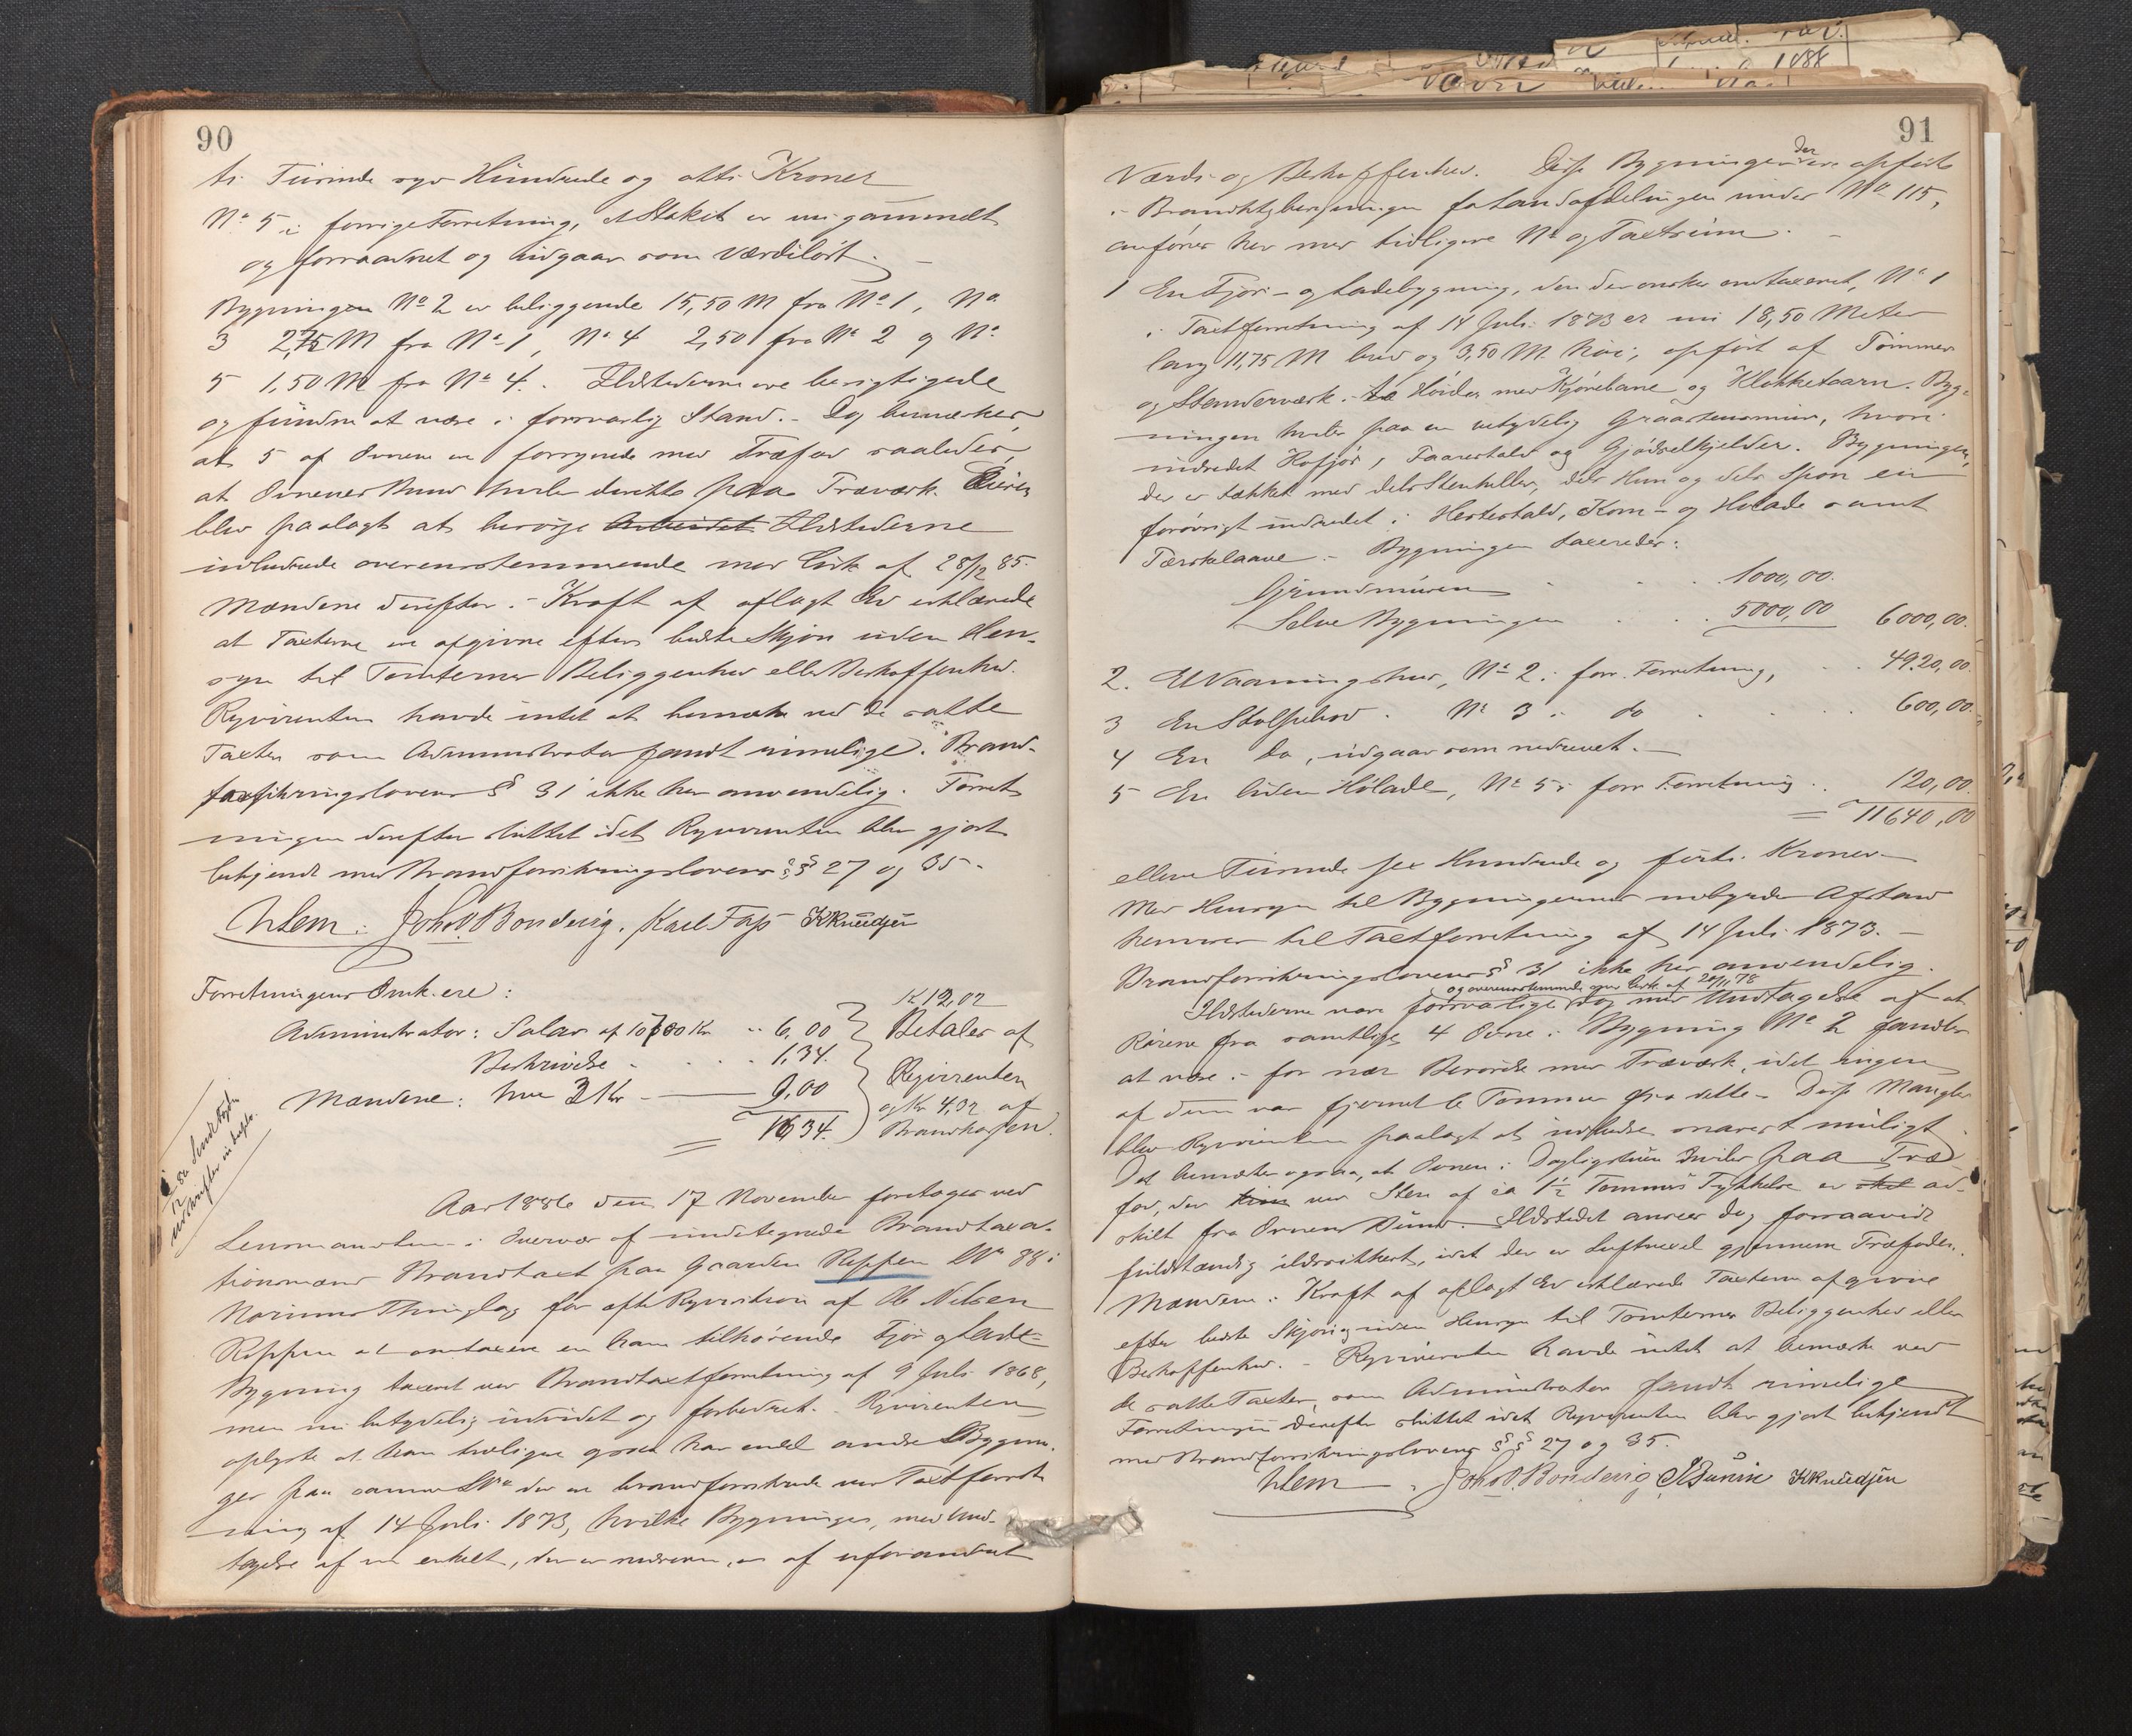 90
ti Tusinde syv Hundrede og otti Kroner
No 5 i forrige Forretning, et Stakit er nu gammelt
og forraadnet og udgaar som værdiløst. —
Bygningen No 2 er beliggende 15,50 M fra No 1, No
3 2,75 M fra No 1, No 4 2,50 fra No 2 og No
5 1,50 M fra No 4. Ildstederne ere besigtigede
og fundne at være i forsvarlig Stand. – Dog bemærkes,
at 5 af Ovnene er forsynede med Træfod saaledes,
at Ovnenes Bund hviler direkte paa Træværk. Eieren
blev paalagt at besørge Arbeidet Ildstederne
udbedrede overensstemmende med Cirk. af 28/12 85.
Mændene derefter i Kraft af aflagt Ed erklærede
at Taxterne ere afgivne efter bedste Skjøn uden Hen-
syn til Tomternes Beliggenhed eller Beskaffenhed.
Rqvirenten havde intet at bemærke ved de satte
Taxter som Administrator fandt rimelige. Brand-
forsikringslovens § 31 ikke her anvendelig. Forret-
ningen derefter sluttet idet Rqvirenten blev gjort
bekjendt med Brandforsikringslovens §§ 27 og 35 –
Ulem. Joh. O. Bondevig. Karl Fass KKnudsen
Forretningens Omk. ere:
Administrator: Salær af 10780 Kr .. 6,00
Beskrivelse . . . 1,34.
Mændene: hver 3 Kr — 9,00
= 16,34.
Kr 12,02
Betales af
Rqvirenten
og Kr 4,32 af
Brandkassen.
Aar 1886 den 17 November foretoges ved
Lensmanden i Overvær af undertegnede Brandtaxa-
tionsmænd Brandtaxt paa Gaarden Reppen No 88 i
Norums Thinglag for efter Rqvisition af Ole Nilsen
Reppen at omtaxere en ham tilhørende Fjøs og Lade
Bygning taxeret ved Brandtaxtforretning af 9 Juli 1868,
men nu betydelig udvidet og forbedret. Rqvirenten
oplyste at han tidligere ogsaa har endel andre Bygnin-
ger paa samme No der er brandforsikrede ved Taxtforret-
ning af 14 Juli 1873, hvilke Bygninger, med Und-
tagelse af en enkelt, der er nedreven, er af uforandret
91
Værdi og Beskaffenhed. Disse Bygninger, der ere opført
i Brandhjelpningen fra Landafdelingen under No 115,
anføres her med tidligere No og Taxtsum. –
1 En Fjøs- og Ladebygning, den der ønskes omtaxeret, No 1
i Taxtforretning af 14 Juli 1873 er nu 18,50 Meter
lang 11,75 M bred og 3,50 M. høi, opført af Tømmer
og Stenderværk i to Høider med Kjørebane og Klokketaarn. Byg-
ningen hviler paa en betydelig Graastensmur, hvori
indredet Kofjøs, Faarestald og Gjødselkjelder. Bygningen,
der er tækket med dels Stenheller, dels Hun og dels Spon er
forøvrigt indredet i Hestestald, Korn- og Hølade samt
Tærskelaave. – Bygningen taxeredes:
Grundmuren . . . 1000,00.
Selve Bygningen . . . 5000,00 6000,00.
2. Et Vaaningshus, No 2 i forr. Forretning, . . 4920,00.
3 En Stolpebod . No 3 i do . . . 600,00.
4 En do, udgaar som nedrevet. —
5 En liden Hølade, No 5 i forr Forretning . . 120,00.
= 11640,00
elleve Tusinde sex Hundrede og førti Kroner —
Med Hensyn til Bygningernes indbyrdes Afstand
henvises til Taxtforretning af 14 Juli 1873. –
Brandforsikringslovens § 31 ikke her anvendelig.
og overensstemmende med Cirk. af 20/11 78
Ildstederne vare forsvarlige dog med Undtagelse af at
Rørene fra samtlige 4 Ovne i Bygning No 2 fandtes
at være i for nær Berørelse med Træværk, idet ingen
af dem var fjernet 6 Tommer fra dette. – Disse Mangler
blev Rqvirenten paalagt at udbedre snarest muligt
Det bemærkes ogsaa, at Ovnen i Dagligstuen hviler paa Træ-
fod, der ved Sten af ca 1½ Tommes Tykkelse er ad-
skilt fra Ovnens Bund. Ildstedet ansees dog forsaavidt
fuldstændig ildsikkert, idet der er Luftvexel gjennem Træfoden.
Mændene i Kraft af aflagt Ed erklærede Taxterne afgivne
efter bedste Skjøn og uden Hensyn til Tomternes Beliggenhed eller
Beskaffenhed. – Rqvirenten havde intet at bemærke ved
de satte Taxter, som Administrator fandt rimelige
Forretningen derefter sluttet idet Rqvirenten blev gjort bekjendt
med Brandforsikringslovens §§ 27 og 35.
Ulem. Joh. O. Bondevig KKnudsen